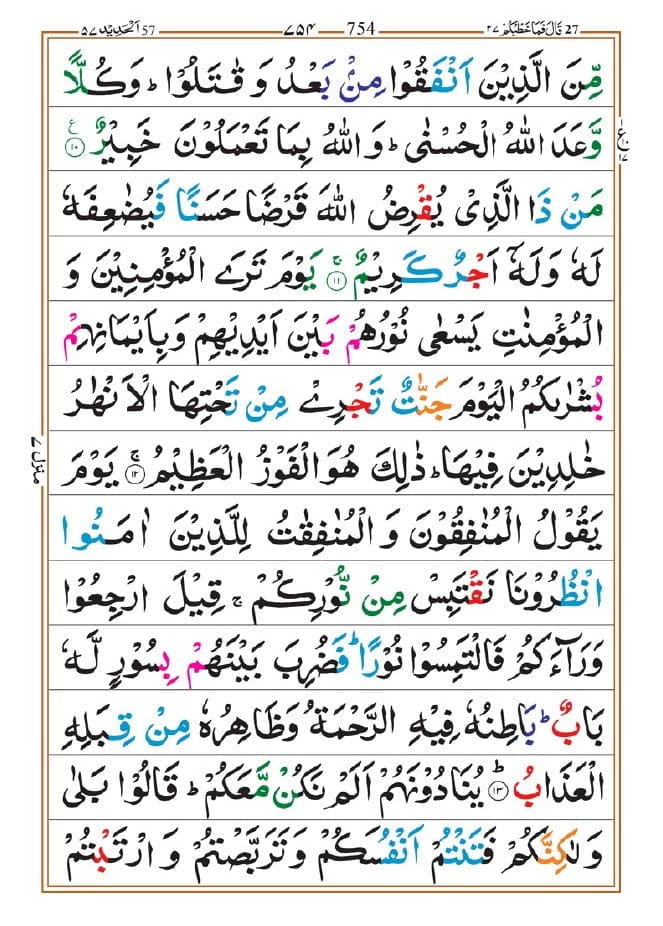 57 اَلْحَدِیْد ۵۷
754 ۷۵۴
27 قَالَ فَمَا خَطْبُكُمْ ۲۷
مِّنَ الَّذِیْنَ اَنْفَقُوْا مِنْۢ بَعْدُ وَ قٰتَلُوْا ؕ وَ كُلًّا
وَّعَدَ اللّٰهُ الْحُسْنٰی ؕ وَ اللّٰهُ بِمَا تَعْمَلُوْنَ خَبِیْرٌ ﴿۱۰﴾
مَنْ ذَا الَّذِیْ یُقْرِضُ اللّٰهَ قَرْضًا حَسَنًا فَیُضٰعِفَهٗ
لَهٗ وَ لَهٗۤ اَجْرٌ كَرِیْمٌ ﴿۱۱﴾ یَوْمَ تَرَی الْمُؤْمِنِیْنَ وَ
الْمُؤْمِنٰتِ یَسْعٰی نُوْرُهُمْ بَیْنَ اَیْدِیْهِمْ وَ بِاَیْمَانِهِمْ
بُشْرٰىكُمُ الْیَوْمَ جَنّٰتٌ تَجْرِیْ مِنْ تَحْتِهَا الْاَنْهٰرُ
خٰلِدِیْنَ فِیْهَا ؕ ذٰلِكَ هُوَ الْفَوْزُ الْعَظِیْمُ ﴿۱۲﴾ یَوْمَ
یَقُوْلُ الْمُنٰفِقُوْنَ وَ الْمُنٰفِقٰتُ لِلَّذِیْنَ اٰمَنُوا
انْظُرُوْنَا نَقْتَبِسْ مِنْ نُّوْرِكُمْ ۚ قِیْلَ ارْجِعُوْا
وَرَآءَكُمْ فَالْتَمِسُوْا نُوْرًا ؕ فَضُرِبَ بَیْنَهُمْ بِسُوْرٍ لَّهٗ
بَابٌ ؕ بَاطِنُهٗ فِیْهِ الرَّحْمَةُ وَ ظَاهِرُهٗ مِنْ قِبَلِهِ
الْعَذَابُ ﴿۱۳﴾ یُنَادُوْنَهُمْ اَلَمْ نَكُنْ مَّعَكُمْ ؕ قَالُوْا بَلٰی
وَ لٰكِنَّكُمْ فَتَنْتُمْ اَنْفُسَكُمْ وَ تَرَبَّصْتُمْ وَ ارْتَبْتُمْ
منزل ۷